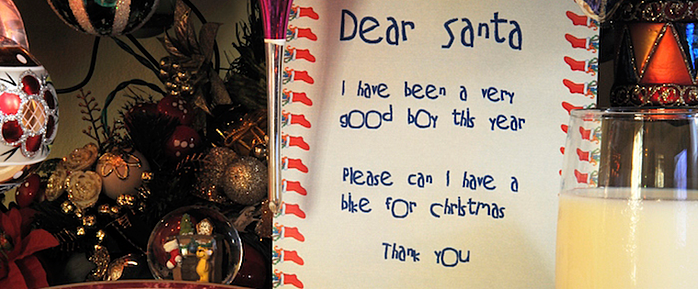 Dear Santa
I have been a very
good boy this year
Please can I have a
bike for christmas
Thank you